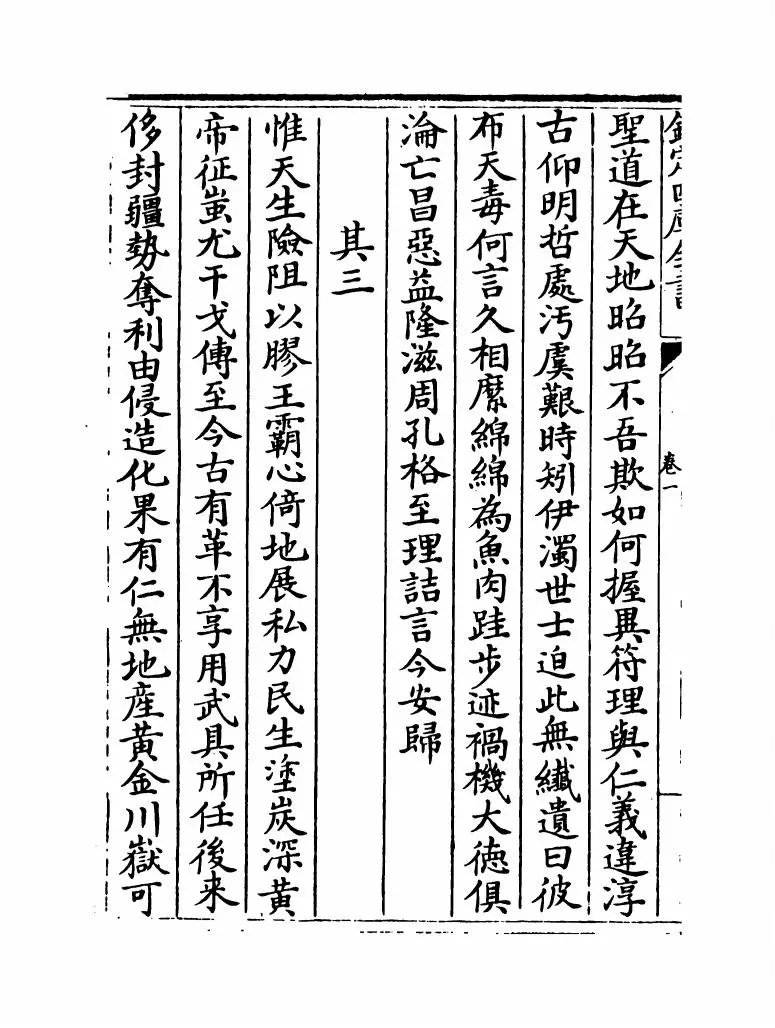 欽定四庫全書
卷一
聖道在天地昭昭不吾欺如何握異符理與仁義違淳
古仰明哲處汚虞艱時矧伊濁世士迫此無纎遺曰彼
布天毒何言久相縻綿綿為魚肉跬步迹禍機大徳俱
淪亡昌惡益隆滋周孔格至理詰言今安歸
其三
惟天生險阻以膠王霸心倚地展私力民生塗炭深黄
帝征蚩尤干戈傳至今古有革不享用武具所任後来
侈封疆勢奪利由侵造化果有仁無地産黄金川嶽可